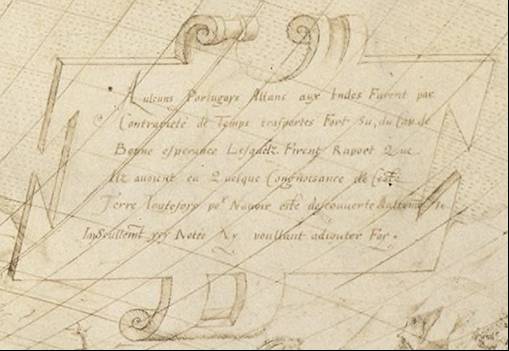 Aulcuns Portugoys Allans aux Indes Furent par
Contrarieté de Temps trasportes Fort Su, du Cap de
Bonne esperance Lesquelz Firent Raport Que
Ilz avoient eu Quelque Congnoisance de Ceste
Terre Toutefoys po^r Navoir esté descouverte Aultremẽt Je
lay Seullemẽt Notée Ny voullant adiouter Foy.